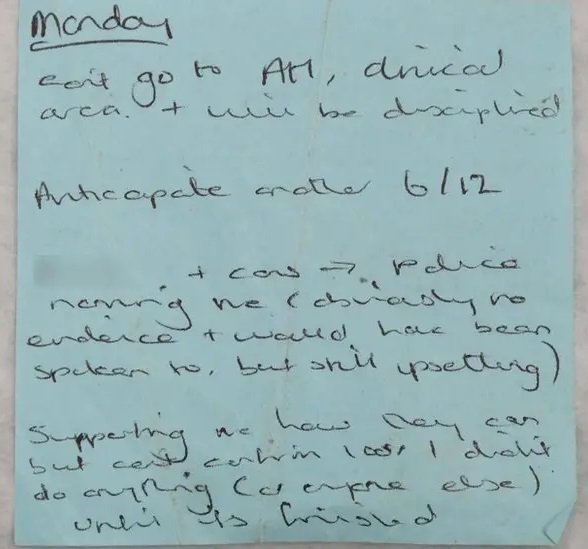 Monday
can't go to AH, clinical
area. + will be disciplined
Anticapate another 6/12
+ cons → police
naming me (obviously no
evidence + would have been
spoken to, but still upsetting)
Supporting me how they can
but can't confirm I didn't
do anything (or anyone else)
until is finished